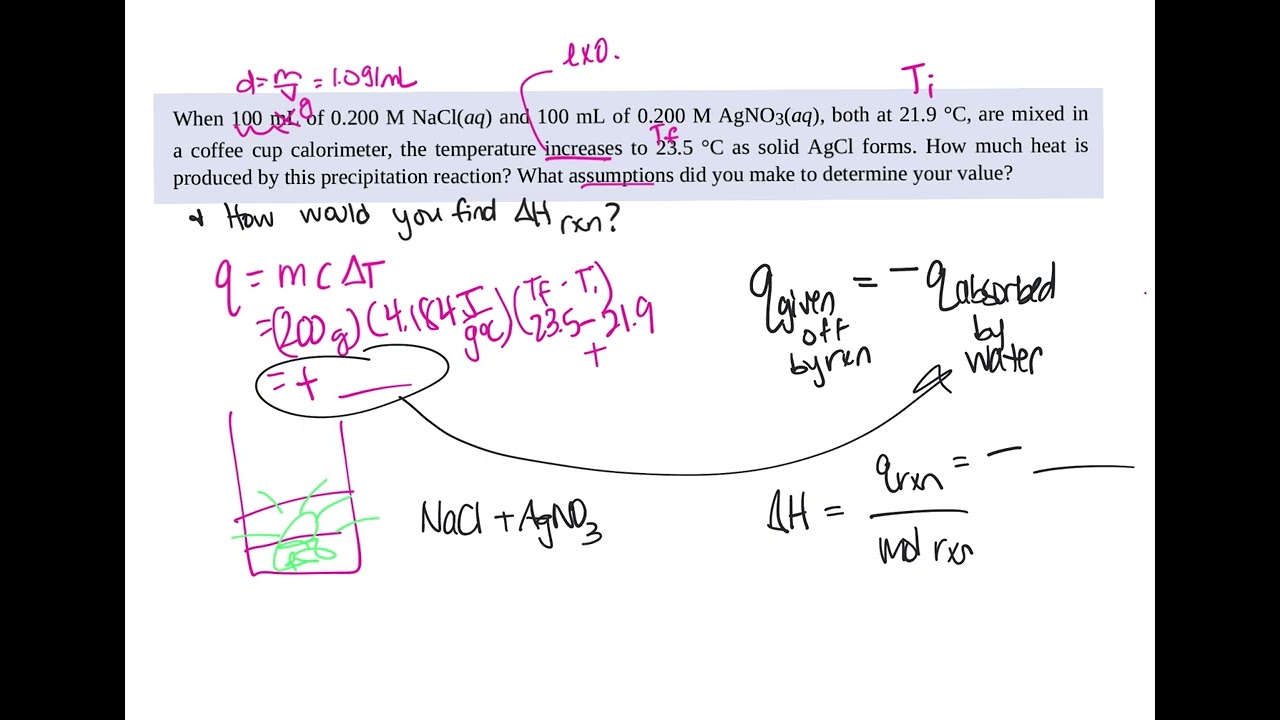 exo.
d = m/V = 1.0g/mL
Ti
g
When 100 mL of 0.200 M NaCl(aq) and 100 mL of 0.200 M AgNO3(aq), both at 21.9 °C, are mixed in
Tf
a coffee cup calorimeter, the temperature increases to 23.5 °C as solid AgCl forms. How much heat is
produced by this precipitation reaction? What assumptions did you make to determine your value?
How would you find ΔH rxn?
q = mCΔT
Tf - Ti
= (200g)(4.184 J/g°C)(23.5 - 21.9)
+
= + ____
q given off by rxn = - q absorbed by water
NaCl + AgNO3
ΔH = q rxn / mol rxn = - ____